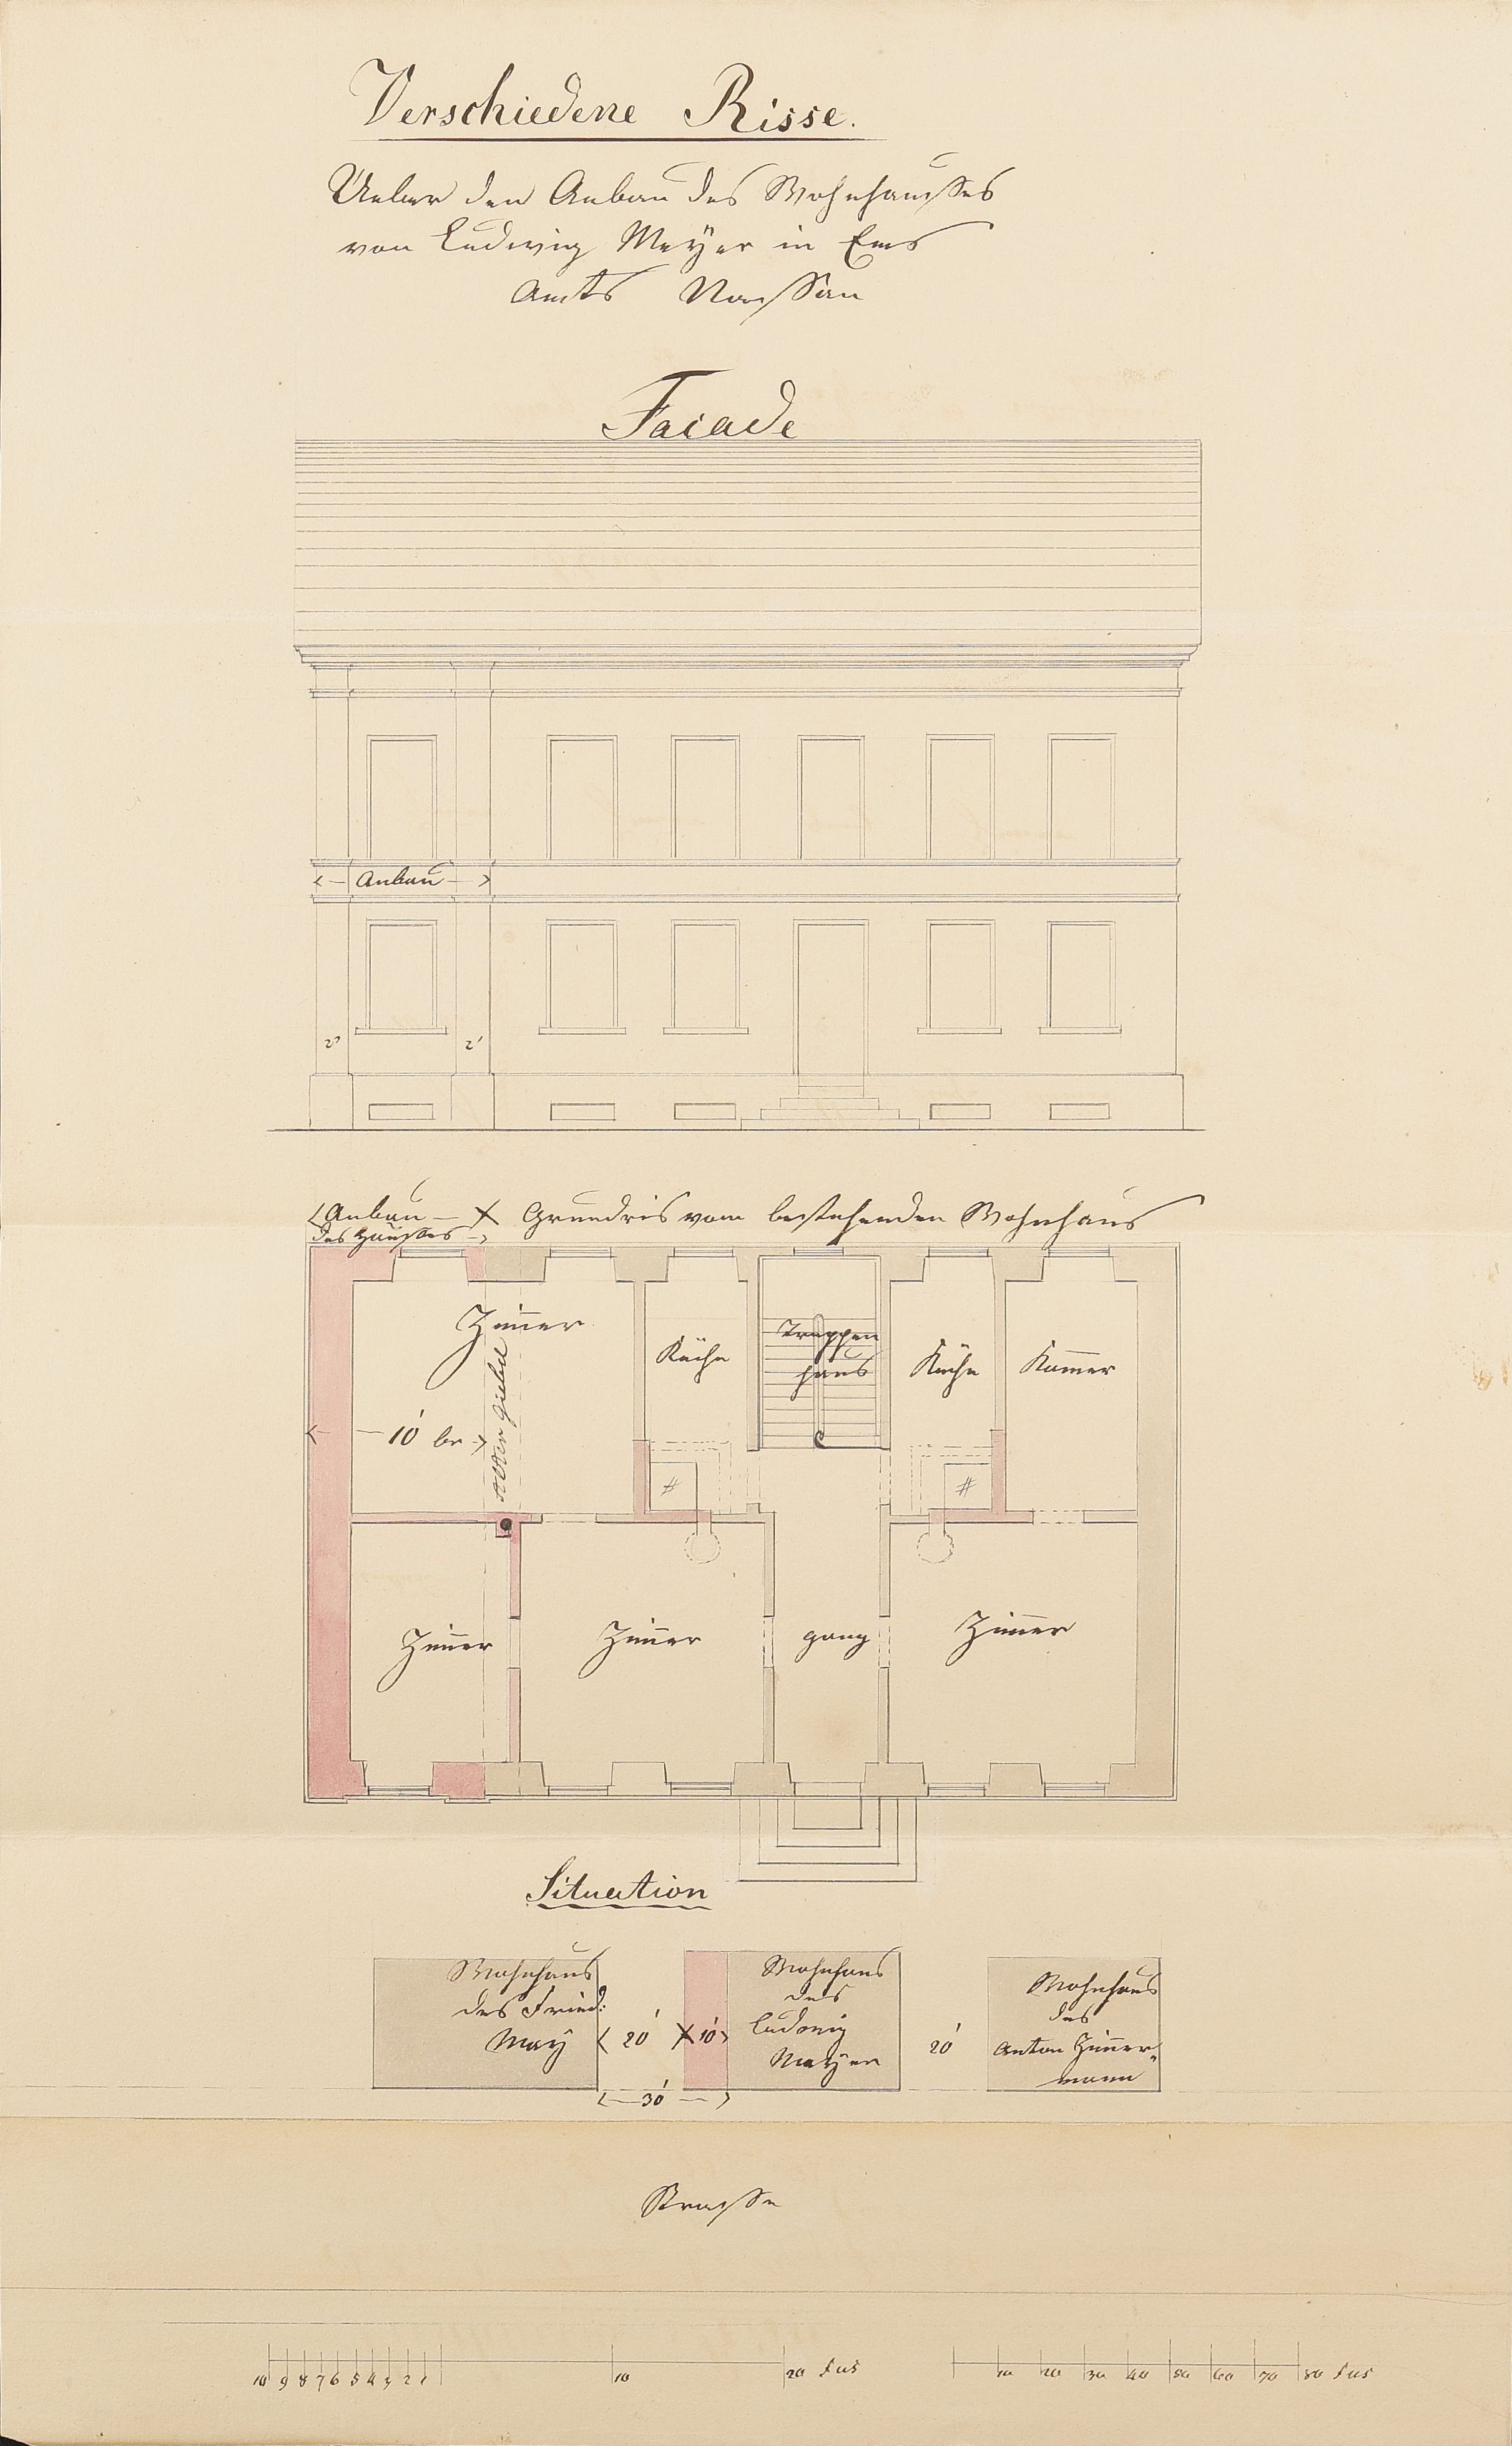 Verschiedene Risse.
Ueber den Anbau des Wohnhausses
von Ludwig Meÿer in Ems
Amts Nassau
Faiade
Anbau
2'
2'
Anbau
des Hausses
Grundris vom bestehenden Wohnhaus
Zim̅er
Küche
Treppen
haus
Küche
Kam̅er
10' br
alter Giebel
#
#
Zim̅er
Zim̅er
gang
Zim̅er
Situation
Wohnhaus
des Fried:
Maÿ
20'
10'
30'
Wohnhaus
des
Ludwig
Meÿer
20'
Wohnhaus
des
Anton Zim̅er-
mann
Strasse
10 9 8 7 6 5 4 3 2 1 10 20 Fus
10 20 30 40 50 60 70 80 Fus